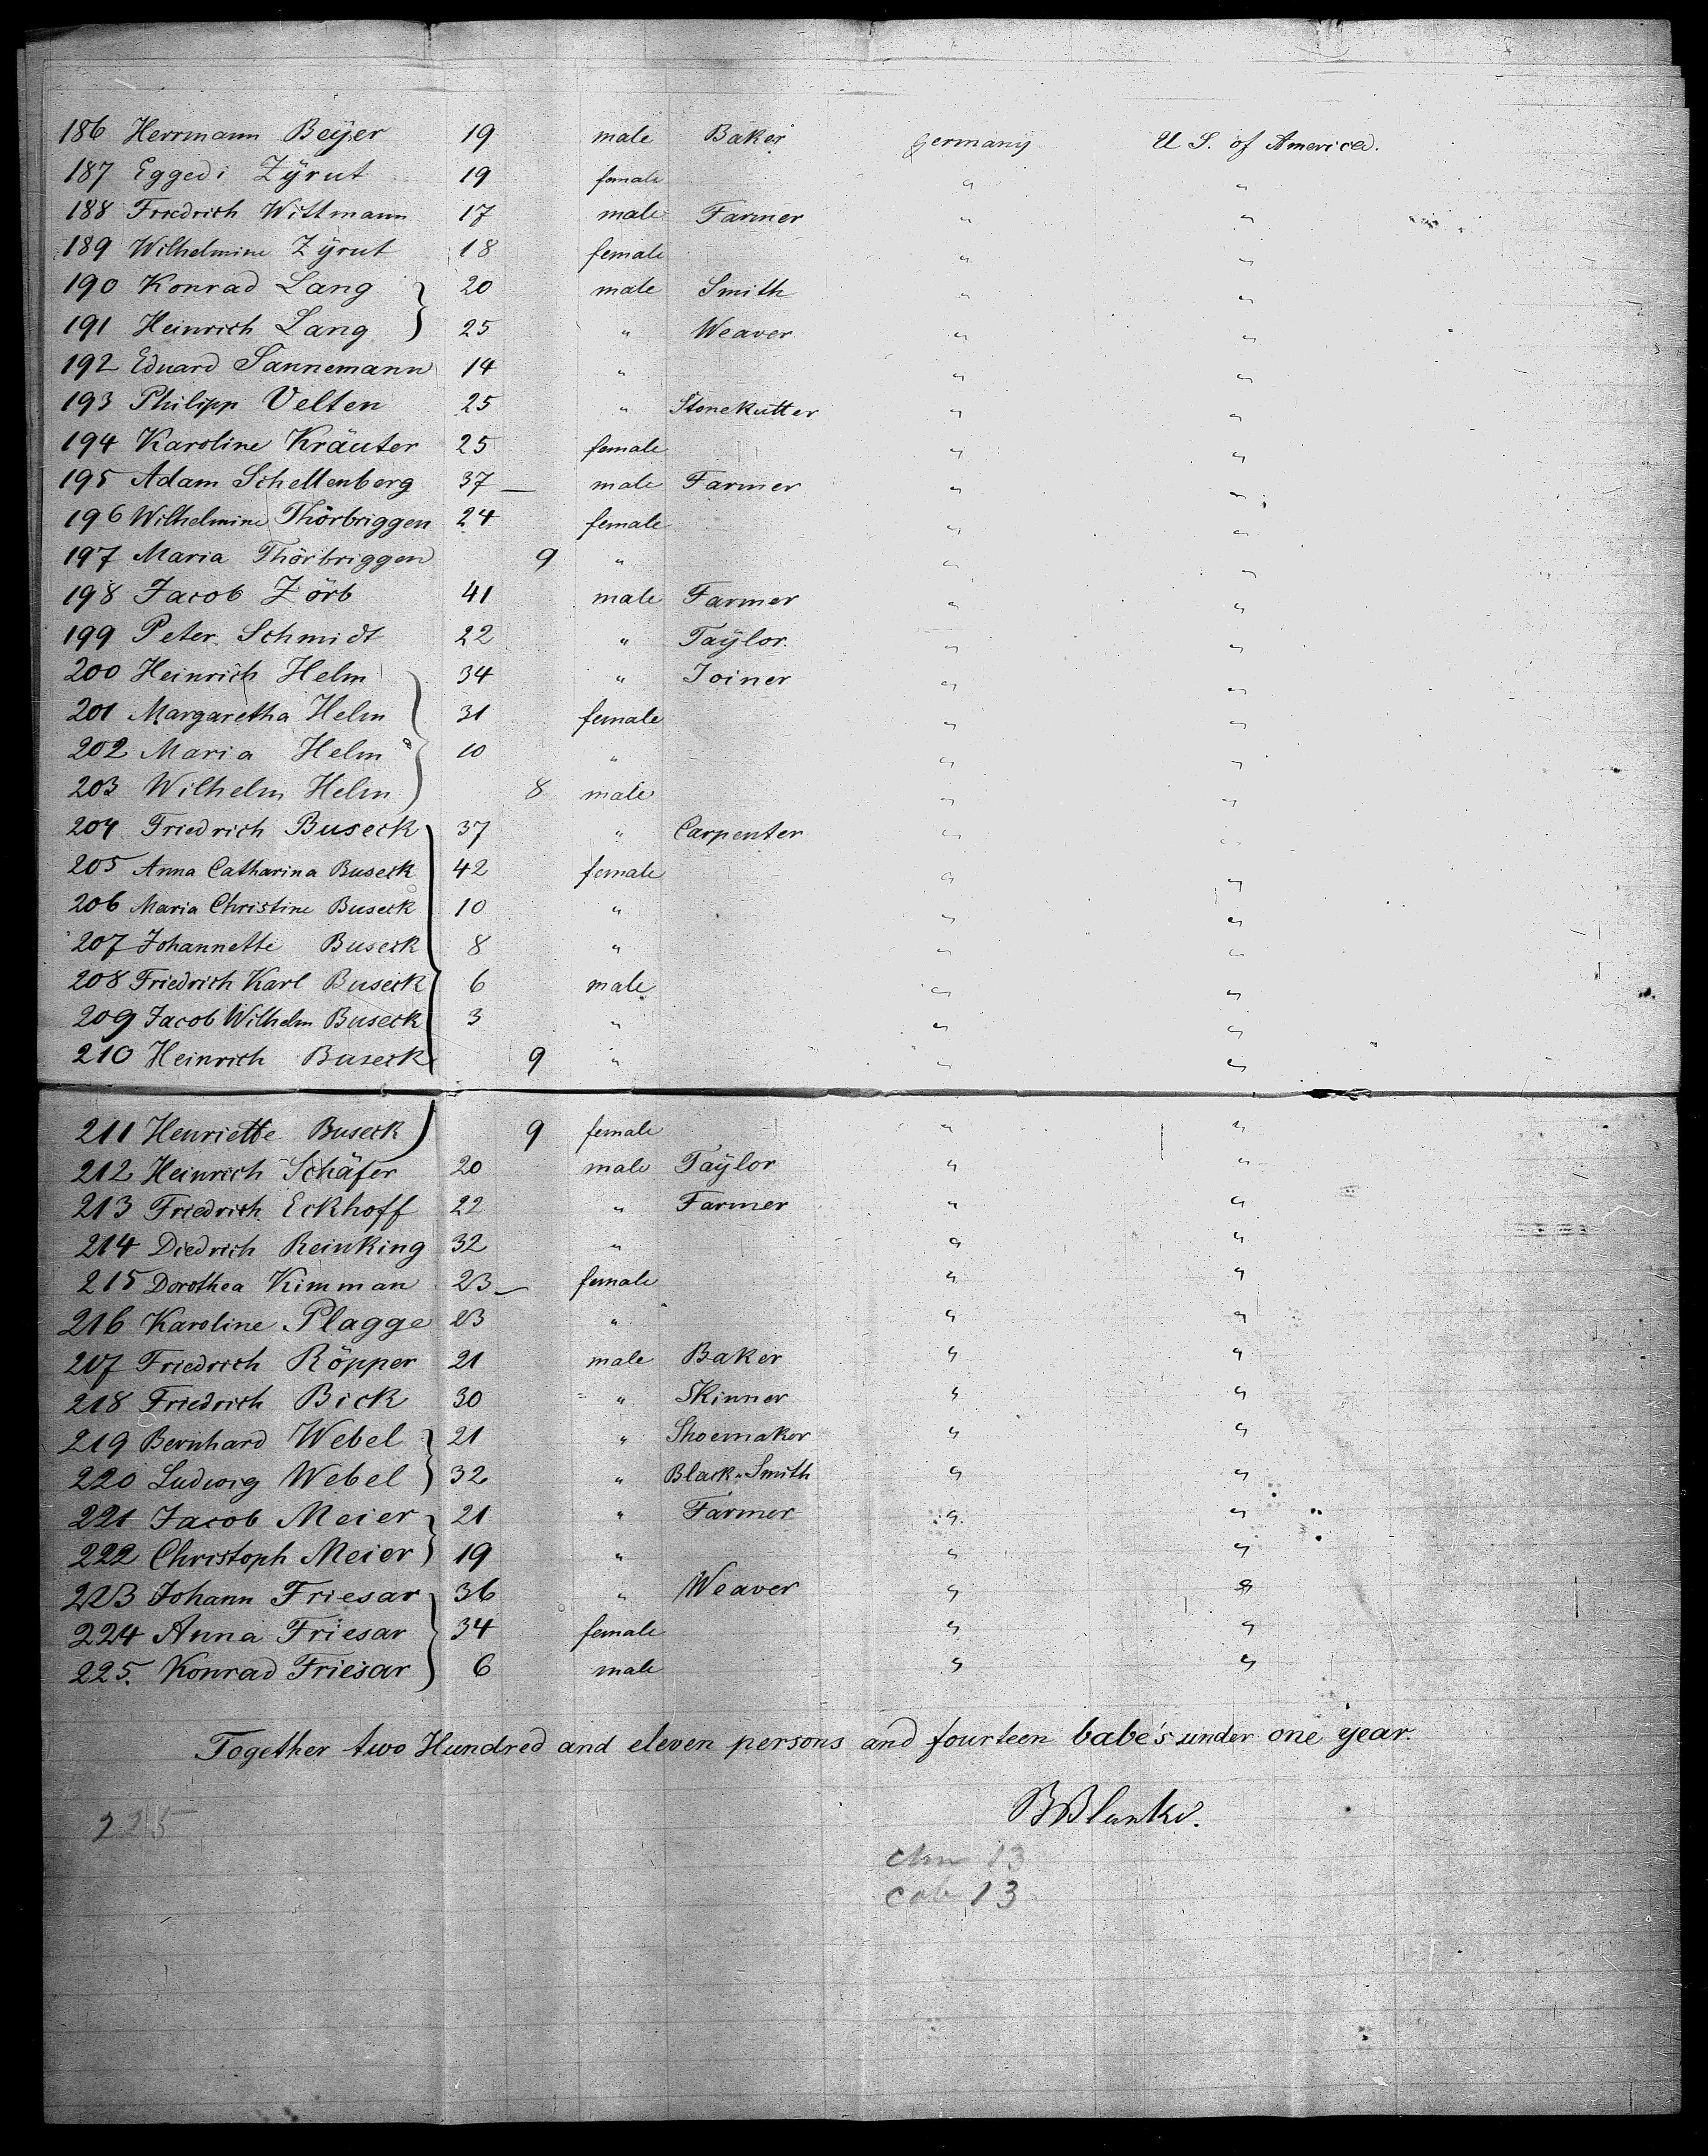 186 Herrmann Beÿer 19 male Baker Germany U S. of America.
187 Eggedi Zÿrut 19 female " "
188 Friedrich Wittmann 17 male Farmer " "
189 Wilhelmine Zÿrut 18 female " "
190 Konrad Lang 20 male Smith " "
191 Heinrich Lang 25 " Weaver " "
192 Eduard Sannemann 14 " " "
193 Philipp Velten 25 " Stonekutter " "
194 Karoline Kräuter 25 female " "
195 Adam Schellenberg 37 — male Farmer " "
196 Wilhelmine Thörbriggen 24 female " "
197 Maria Thörbriggen 9 " " "
198 Jacob Zörb 41 male Farmer " "
199 Peter Schmidt 22 " Taÿlor. " "
200 Heinrich Helm 34 " Joiner " "
201 Margaretha Helm 31 female " "
202 Maria Helm 10 " " "
203 Wilhelm Helm 8 male " "
204 Friedrich Buseck 37 " Carpenter " "
205 Anna Catharina Buseck 42 female " "
206 Maria Christine Buseck 10 " " "
207 Johannette Buseck 8 " " "
208 Friedrich Karl Buseck 6 male " "
209 Jacob Wilhelm Buseck 3 " " "
210 Heinrich Buseck 9 " " "
211 Henriette Buseck 9 female " "
212 Heinrich Schäfer 20 male Taÿlor " "
213 Friedrich Eckhoff 22 " Farmer " "
214 Diedrich Reinking 32 " " "
215 Dorothea Kimman 23 — female " "
216 Karoline Plagge 23 " " "
217 Friedrich Röpper 21 male Baker " "
218 Friedrich Bick 30 " Skinner " "
219 Bernhard Webel 21 " Shoemaker " "
220 Ludwig Webel 32 " Black-Smith " "
221 Jacob Meier 21 " Farmer " "
222 Christoph Meier 19 " " "
223 Johann Friesar 36 " Weaver " "
224 Anna Friesar 34 female " "
225. Konrad Friesar 6 male " "
Together two Hundred and eleven persons and fourteen babe's under one year.
225
cab 13